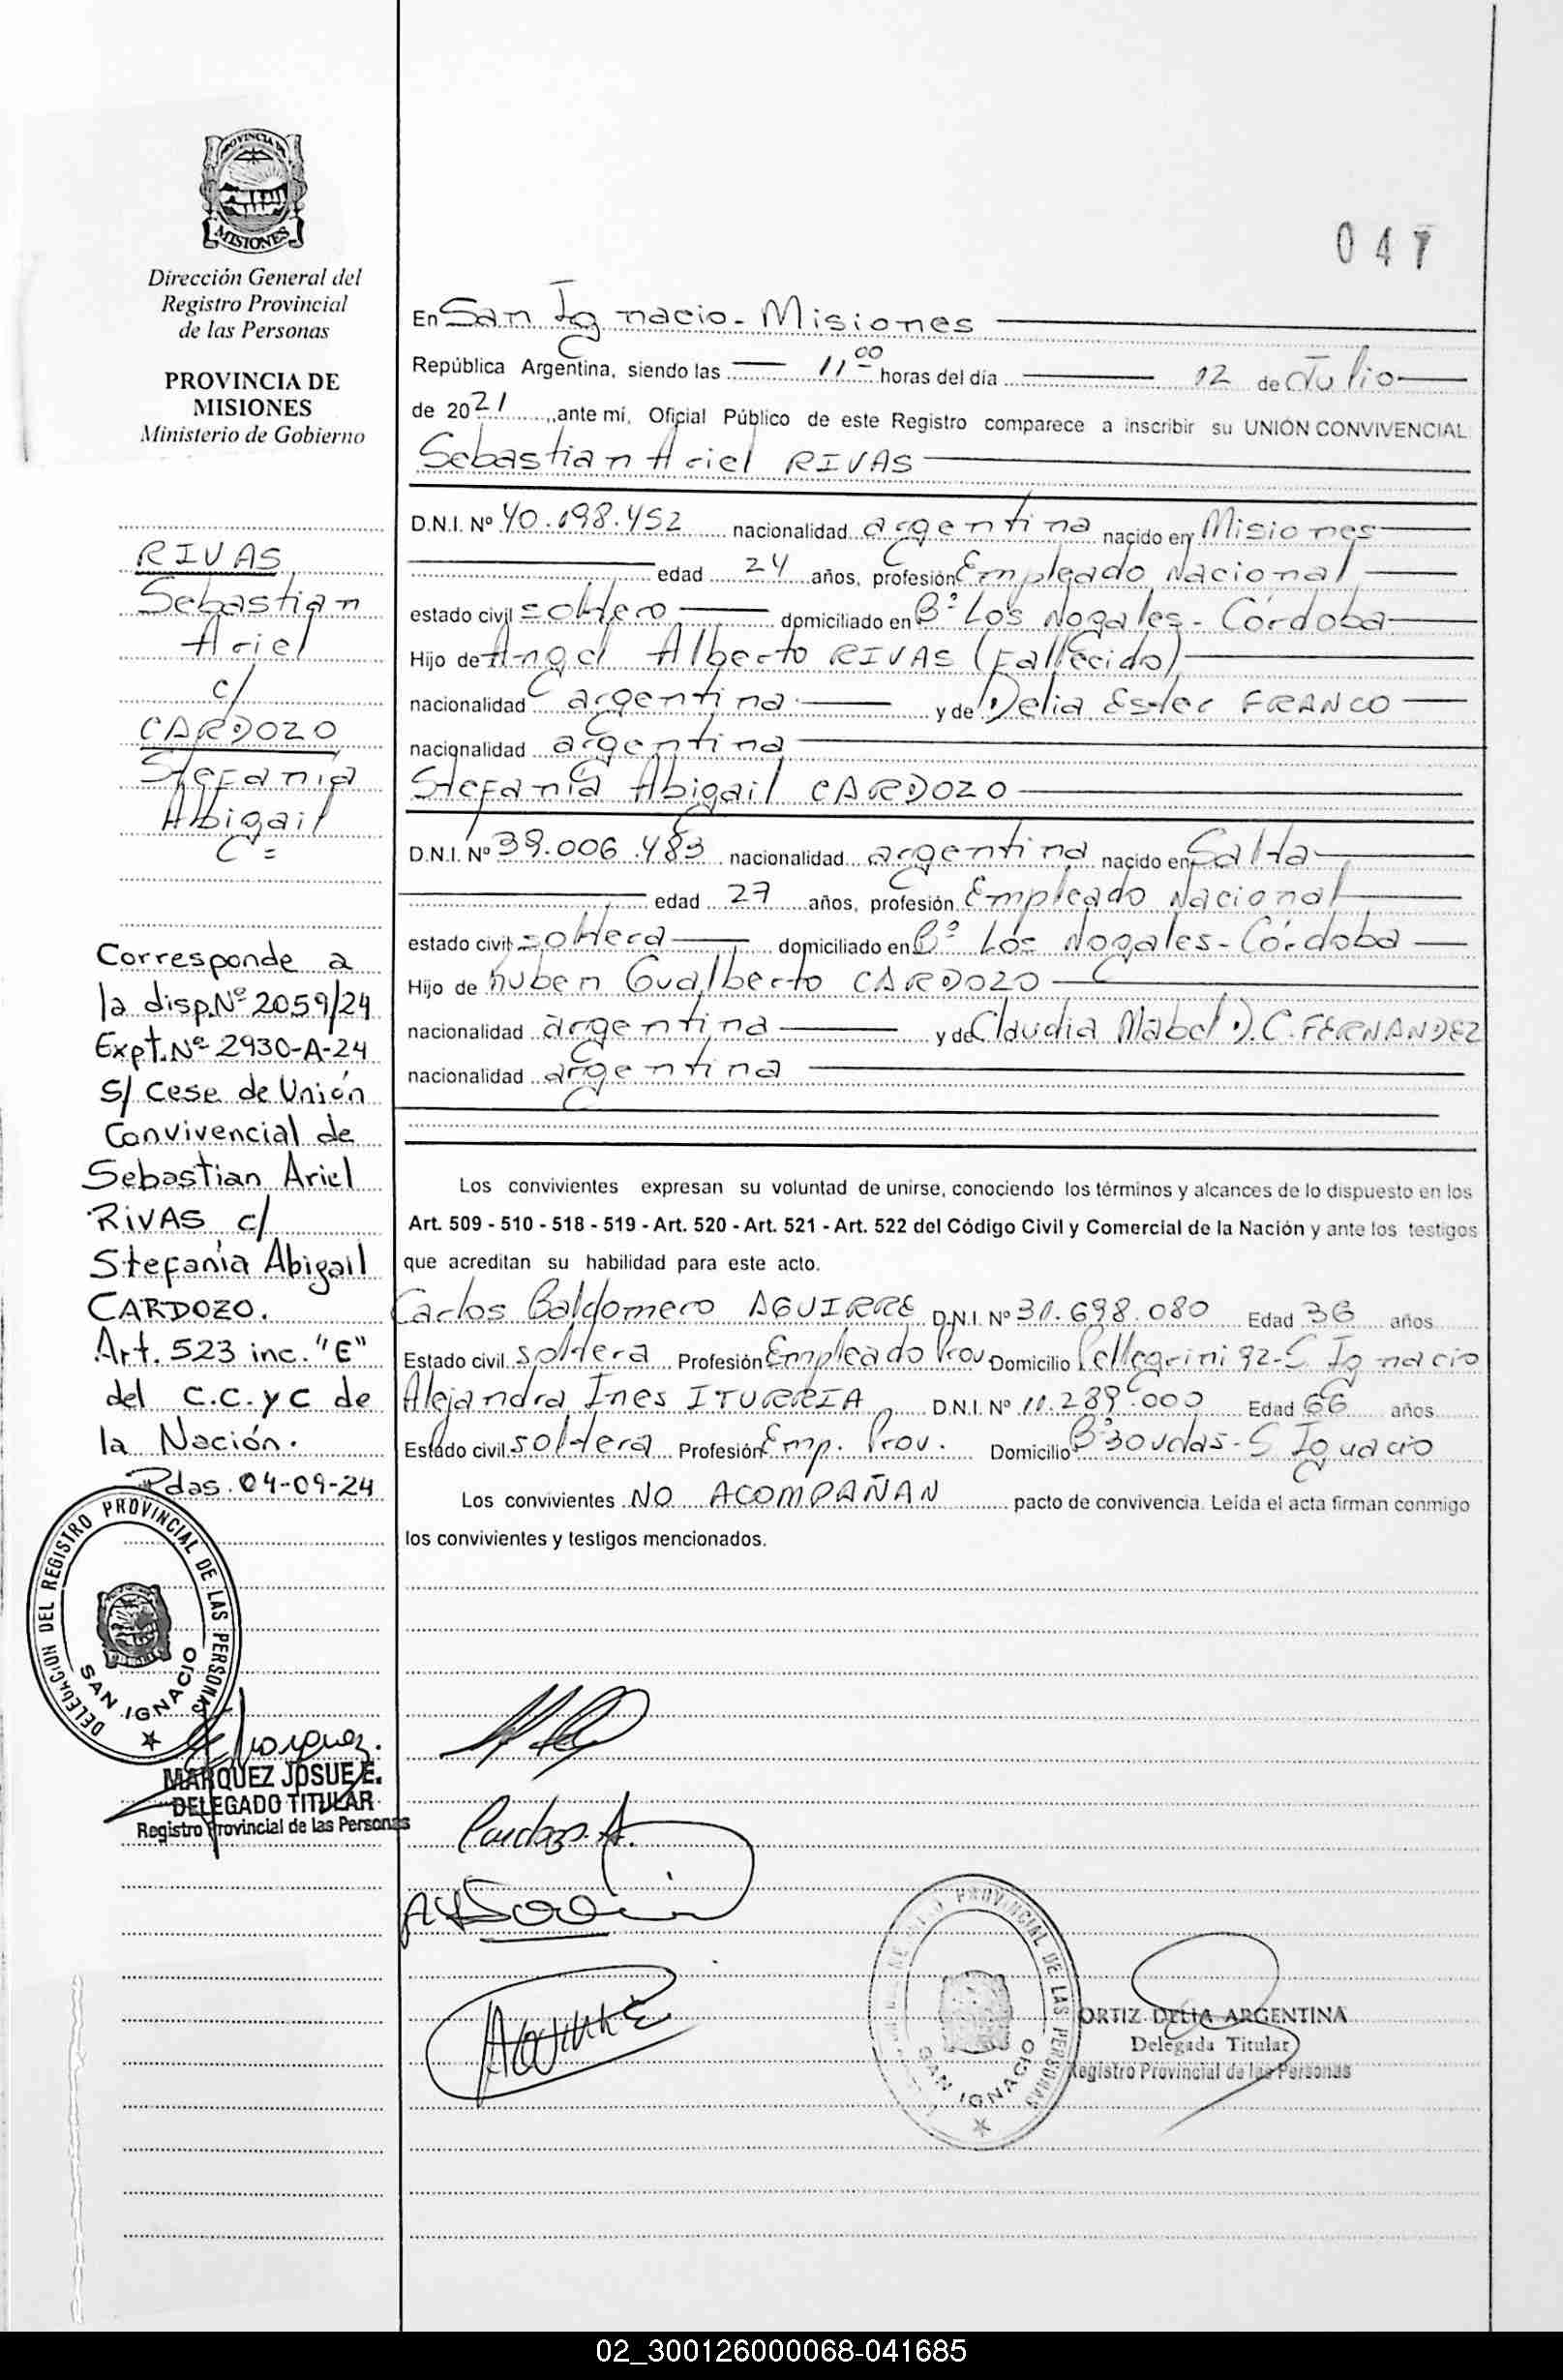 PROVINCIA DE
MISIONES
Dirección General del
Registro Provincial
de las Personas
PROVINCIA DE
MISIONES
Ministerio de Gobierno
RIVAS
Sebastian
Ariel
c/
CARDOZO
Stefanía
Abigail
Corresponde a
la disp. Nº 2059/24
Expt. Nº 2930-A-24
S/ Cese de Unión
Convivencial de
Sebastian Ariel
RIVAS c/
Stefanía Abigail
CARDOZO.
Art. 523 inc. "E"
del C.C. y C de
la Nación.
Pdas. 04-09-24
DELEGACION DEL REGISTRO PROVINCIAL DE LAS PERSONAS
SAN IGNACIO
MARQUEZ JOSUE E.
DELEGADO TITULAR
Registro Provincial de las Personas
047
En San Ignacio - Misiones
República Argentina, siendo las 11 00 horas del día 12 de Julio
de 2021, ante mí, Oficial Público de este Registro comparece a inscribir su UNIÓN CONVIVENCIAL
Sebastian Ariel RIVAS
D.N.I. Nº 40.198.452 nacionalidad argentina nacido en Misiones
edad 24 años, profesión Empleado Nacional
estado civil soltero domiciliado en Bº Los Nogales - Córdoba
Hijo de Angel Alberto RIVAS (Fallecido)
nacionalidad argentina y de Delia Ester FRANCO
nacionalidad argentina
Stefanía Abigail CARDOZO
D.N.I. Nº 39.006.483 nacionalidad argentina nacido en Salta
edad 27 años, profesión Empleado Nacional
estado civil soltera domiciliado en Bº Los Nogales - Córdoba
Hijo de Ruben Gualberto CARDOZO
nacionalidad argentina y de Claudia Mabel D.C. FERNANDEZ
nacionalidad argentina
Los convivientes expresan su voluntad de unirse, conociendo los términos y alcances de lo dispuesto en los
Art. 509 - 510 - 518 - 519 - Art. 520 - Art. 521 - Art. 522 del Código Civil y Comercial de la Nación y ante los testigos
que acreditan su habilidad para este acto.
Carlos Baldomero AGUIRRE D.N.I. Nº 31.698.080 Edad 36 años
Estado civil soltera Profesión Empleado Prov Domicilio Pellegrini 92 - S. Ignacio
Alejandra Ines ITURRIA D.N.I. Nº 11.289.000 Edad 66 años
Estado civil soltera Profesión Emp. Prov. Domicilio Bº 30 vdas - S Ignacio
Los convivientes NO ACOMPAÑAN pacto de convivencia. Leída el acta firman conmigo
los convivientes y testigos mencionados.
Cardozo. A.
PROVINCIAL DE LAS PERSONAS
SAN IGNACIO
ORTIZ DELIA ARGENTINA
Delegada Titular
Registro Provincial de las Personas
02_300126000068-041685